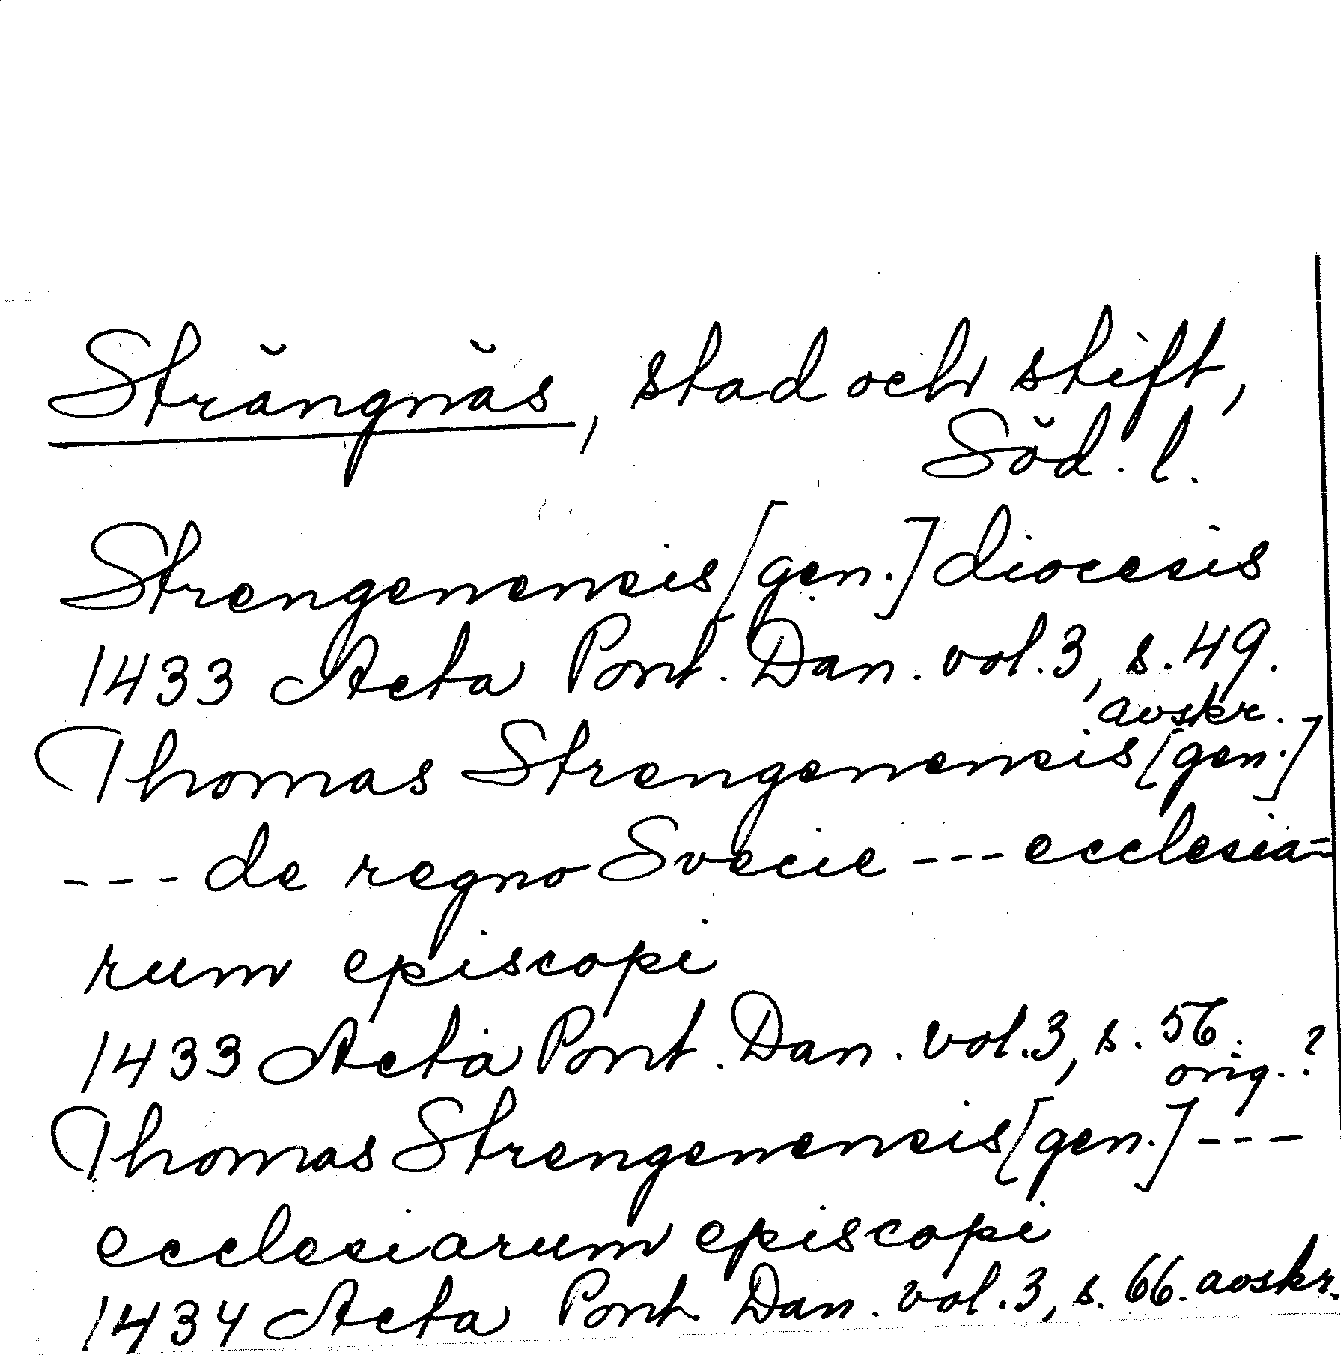 Strängnäs, stad och stift,
Söd. l.
Strengenensis [gen.] diocesis
1433 Acta Pont. Dan. vol. 3, s. 49.
avskr.
Thomas Strengenensis [gen.]
--- de regno Svecie --- ecclesia=
rum episcopi
1433 Acta Pont. Dan. vol. 3, s. 56.
orig.?
Thomas Strengenensis [gen.] ---
ecclesiarum episcopi
1434 Acta Pont. Dan. vol. 3, s. 66. avskr.